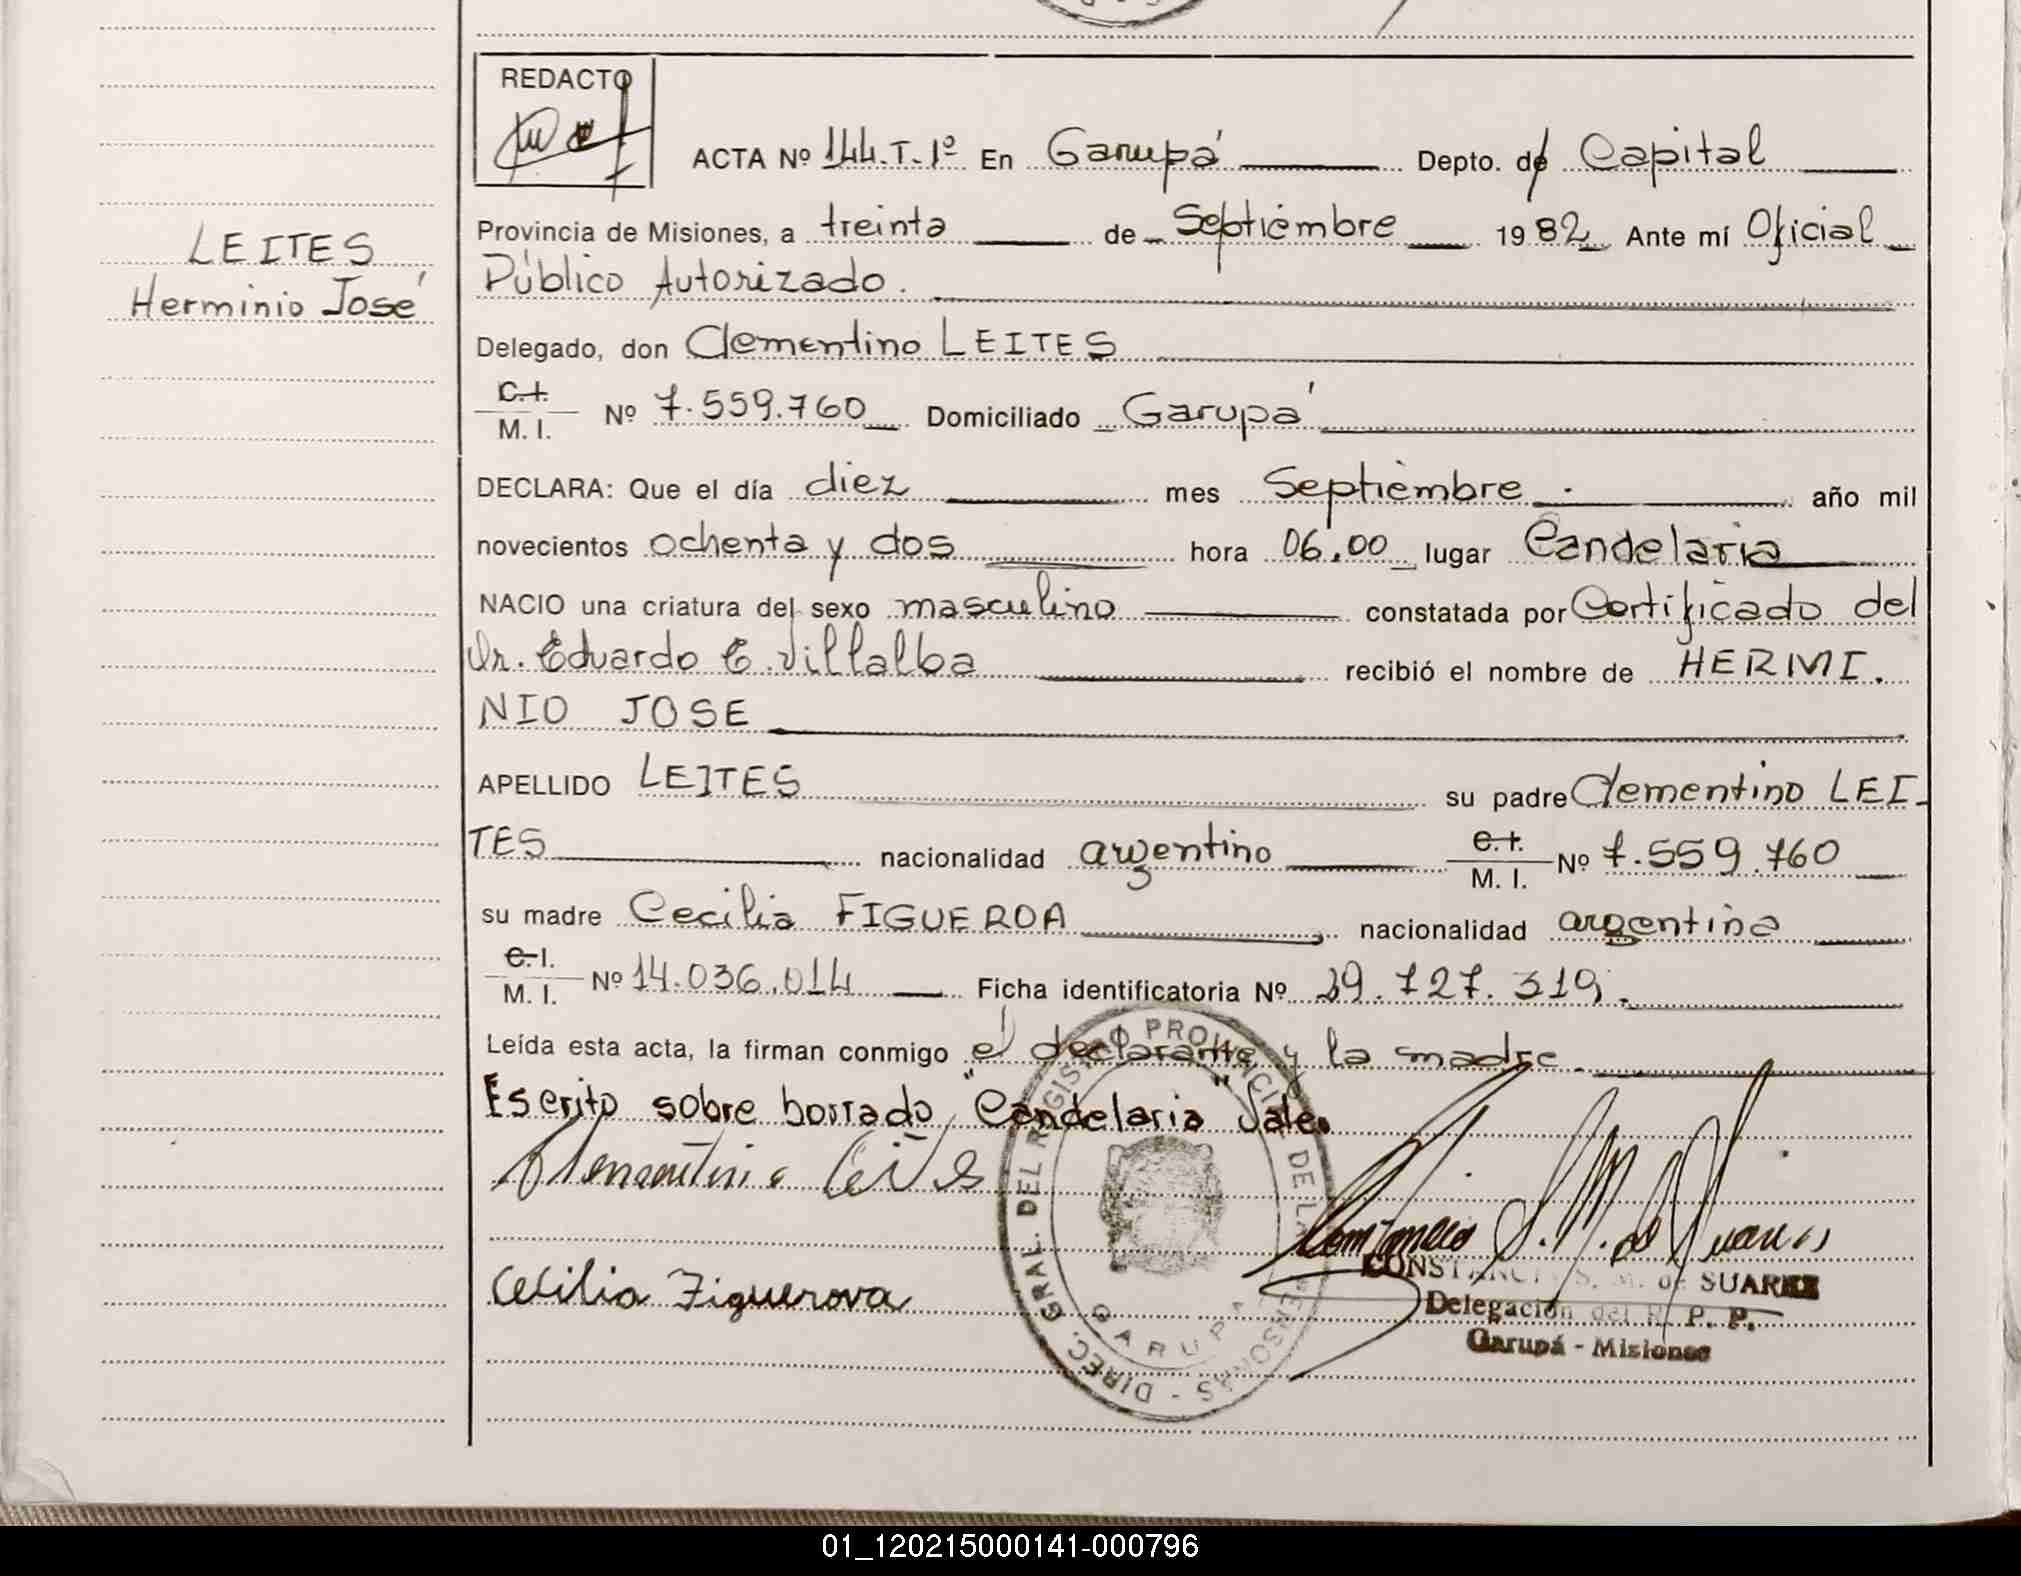 REDACTO
ACTA Nº 144.T.1º En Garupá Depto. de Capital
LEITES
Herminio José
Provincia de Misiones, a treinta de Septiembre 1982 Ante mí Oficial
Público Autorizado.
Delegado, don Clementino LEITES
C.I.
M. I. Nº 7.559.760 Domiciliado Garupá
DECLARA: Que el día diez mes Septiembre año mil
novecientos ochenta y dos hora 06,00 lugar Candelaria
NACIO una criatura del sexo masculino constatada por Certificado del
Dr. Eduardo C. Villalba recibió el nombre de HERMI.
NIO JOSE
APELLIDO LEITES su padre Clementino LEI-
TES nacionalidad argentino C.I. M. I. Nº 7.559.760
su madre Cecilia FIGUEROA nacionalidad argentina
C.I.
M. I. Nº 14.036.014 Ficha identificatoria Nº 29.727.319.
Leída esta acta, la firman conmigo el declarante y la madre.
Escrito sobre borrado "Candelaria" Vale.
Clementino Leites
Cecilia Figuerova
DIREC. GRAL. DEL REGISTRO PROVINCIAL DE LAS PERSONAS -
GARUPA
CONSTANCIA S. M. de SUAREZ
Delegación del R. P. P.
Garupá - Misiones
01_120215000141-000796